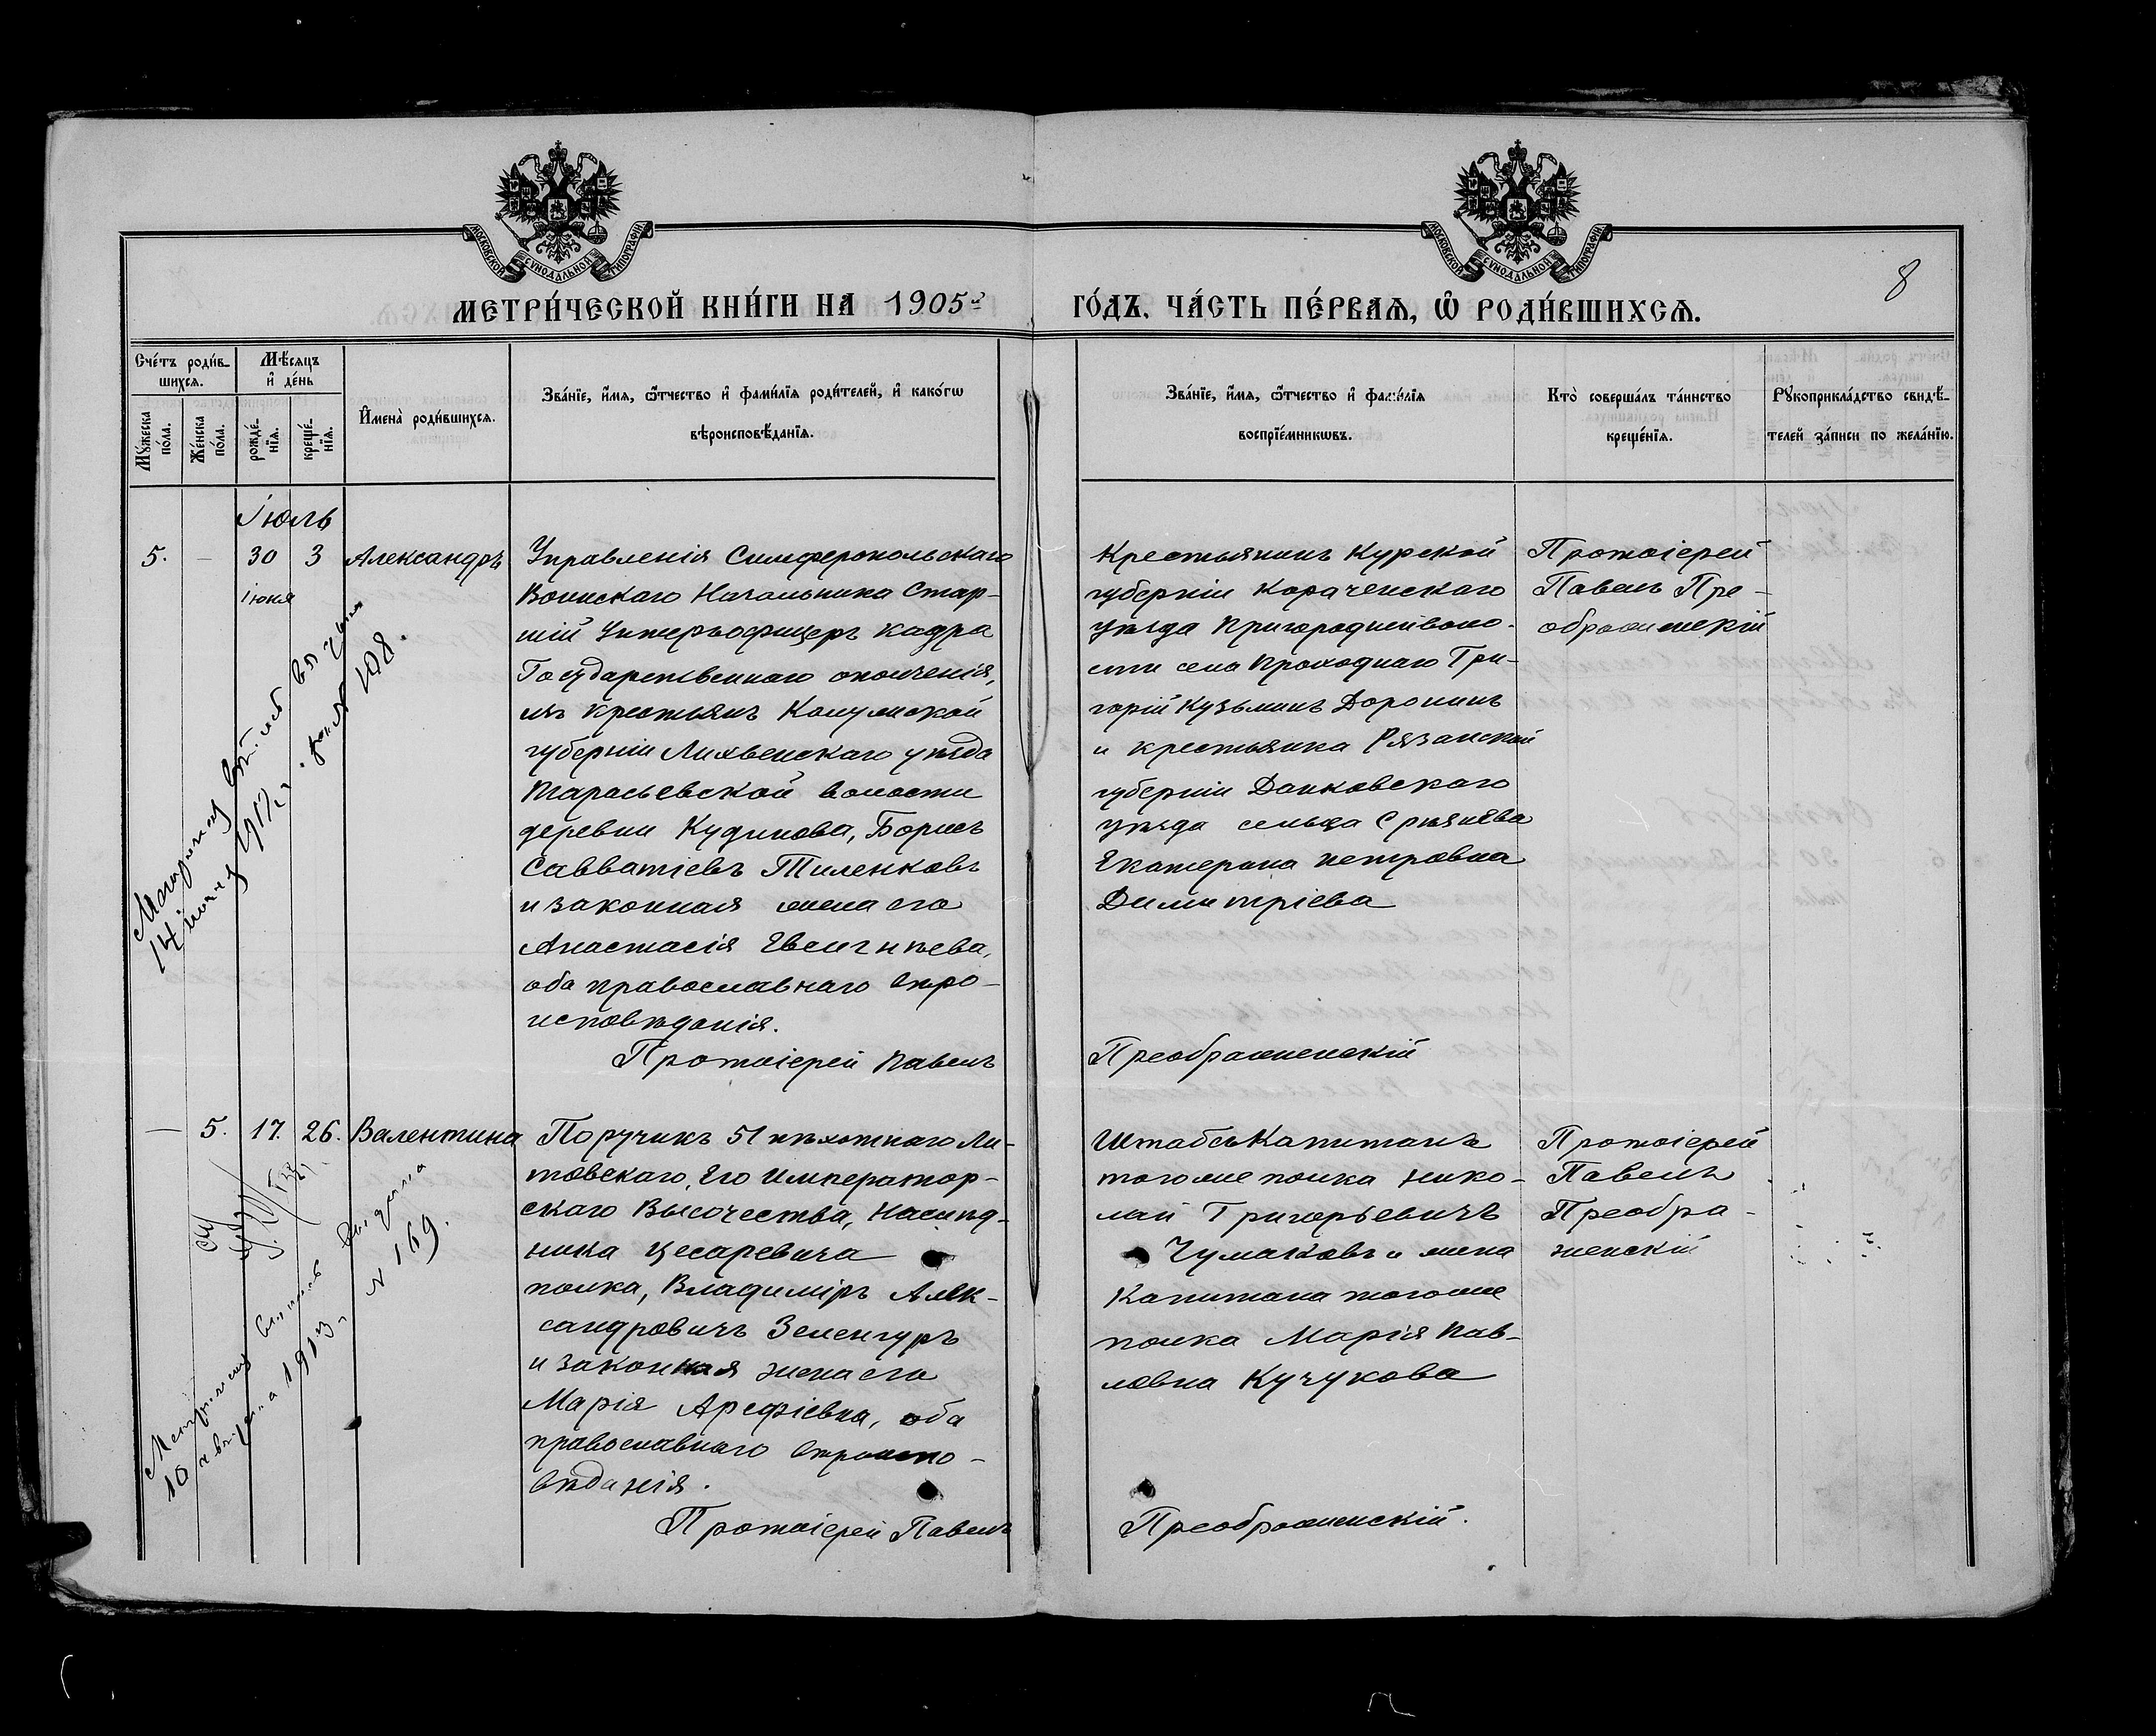 МОСКОВСКОЙ СѴНОДАЛЬНОЙ ТИПОГРАФІИ
МОСКОВСКОЙ СѴНОДАЛЬНОЙ ТИПОГРАФІИ
8
МЕТРИ́ЧЕСКОЙ КНИ́ГИ НА 1905й
ГО́ДЪ, ЧА́СТЬ ПЕ́РВАѦ, Ѡ҆ РОДИ́ВШИХСѦ.
Сче́тъ роди́в-
шихсѧ.
Мꙋ́жеска по́ла.
Же́нска по́ла.
Мѣ́сѧцъ
и҆ де́нь
рожде́-
нїѧ.
креще́-
нїѧ.
И҆мена̀ роди́вшихсѧ.
Зва́нїе, и҆́мѧ, ѻ҆́тчество и҆ фами́лїѧ роди́телей, и҆ како́гѡ
вѣроисповѣ́данїѧ.
Зва́нїе, и҆́мѧ, ѻ҆́тчество и҆ фами́лїѧ
воспрїе́мникѡвъ.
Кто̀ соверша́лъ та́инство
креще́нїѧ.
Рꙋкоприкла́дство свидѣ́-
телей за́писи по жела́нїю.
Іюль
5. – 30 3 Александръ
іюня
Управленія Симферопольскаго
Воинскаго Начальника Стар-
шій Унтеръ-офицеръ кадра
Государственнаго ополченія,
изъ крестьянъ Калужской
губерніи Лихвенскаго уѣзда
Тарасьевской волости
деревни Кудинова, Борисъ
Савватіевъ Тиленковъ
и законная жена его
Анастасія Евсигнѣева,
оба православнаго вѣро-
исповѣданія.
Протоіерей Павелъ
Крестьянинъ Курской
губерніи Корачевскаго
уѣзда Пригородней воло-
сти села Проходнаго Гри-
горій Кузьминъ Доронинъ
и крестьянка Рязанской
губерніи Данковскаго
уѣзда сельца Срезнева
Екатерина Петровна
Димитріева
Преображенскій
Протоіерей
Павелъ Пре-
ображенскій
14 1917 г. 108.
– 5. 17. 26. Валентина
Поручикъ 51 пѣхотнаго Ли-
товскаго, Его Император-
скаго Высочества, Наслѣд-
ника Цесаревича
полка, Владиміръ Алек-
сандровичъ Зеленгуръ
и законная жена его
Марія Арефіевна, оба
православнаго вѣроиспо-
вѣданія.
Протоіерей Павелъ
Штабсъ Капитанъ
того же полка Нико-
лай Григорьевичъ
Чумаковъ и жена
Капитана того же
полка Марія Пав-
ловна Кучукова
Преображенскій.
Протоіерей
Павелъ
Преобра-
женскій
выдана
10 1913 г. № 169.